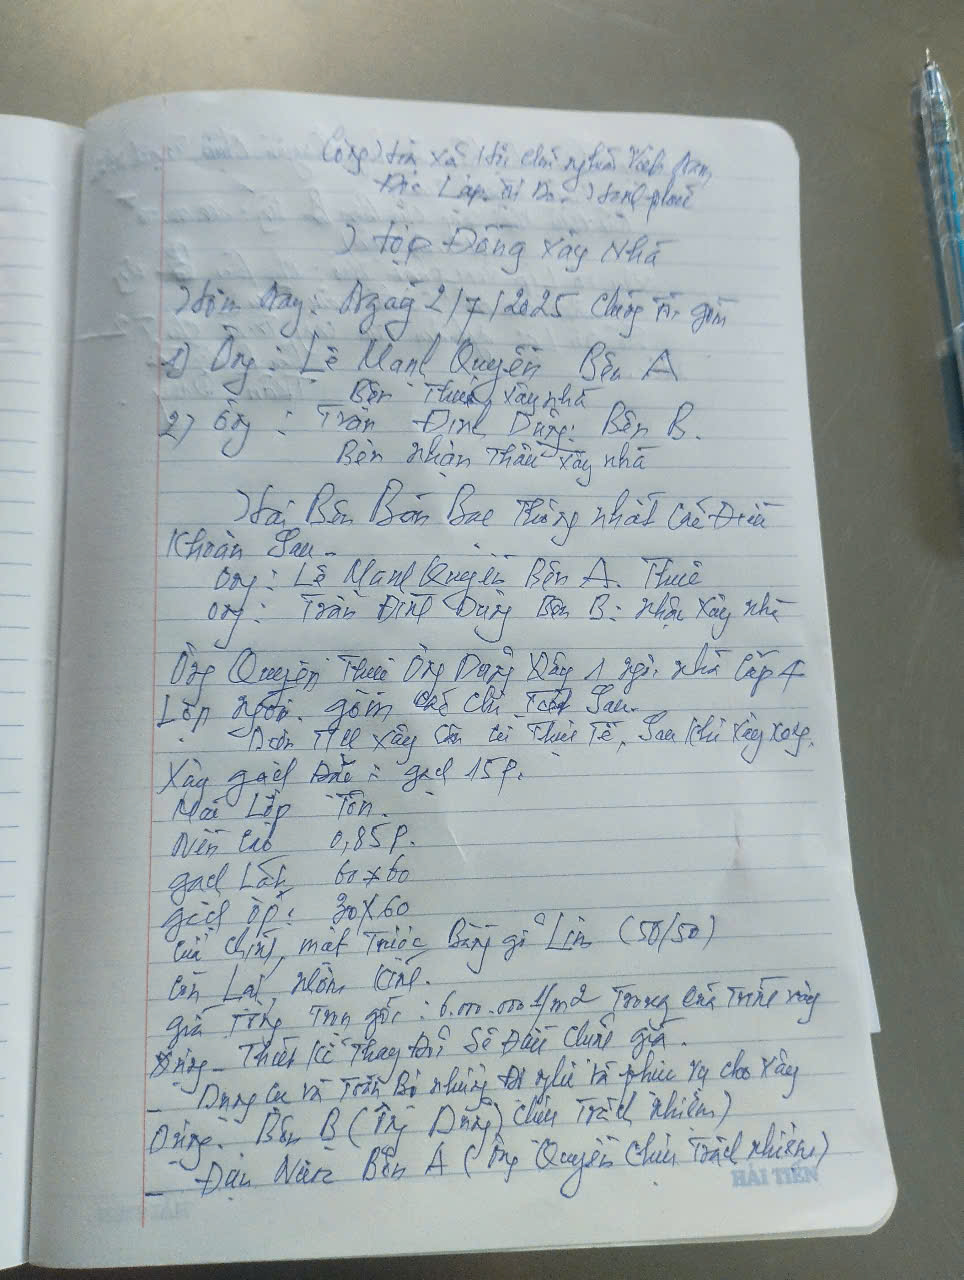 Cộng Hòa xã Hội chủ nghĩa Việt Nam
Độc Lập. Tự Do. Hạnh phúc
Hợp Đồng Xây Nhà
Hôm Nay: Ngày 2/7/2025 Chúng Tôi gồm
1) Ông: Lê Mạnh Quyền Bên A
Bên Thuê Xây nhà
2) Ông: Trần Đình Dũng: Bên B.
Bên Nhận Thầu xây nhà
Hai Bên Bàn Bạc Thống nhất Các Điều
Khoản Sau-
Ông: Lê Mạnh Quyền Bên A. Thuê
Ông: Trần Đình Dũng Bên B: nhận Xây nhà
Ông Quyền Thuê Ông Dũng Xây 1 ngôi nhà Cấp 4
Lợp ngói. gồm Các Chi Tiết Sau.
Diện Tích Xây Căn cứ Thực Tế, Sau Khi Xây xong.
Xây gạch gạch 15P.
Mái Lợp Tôn.
Nền Cao 0,85P.
gạch Lát 60x60
gạch ốp: 30x60
Cửa chính, mặt Trước Bằng gỗ Lim (50/50)
Còn Lại, nhôm Kính.
giá Trọn gói: 6.000.000đ/m2 Trong Quá Trình xây
dựng - Thiết Kế Thay Đổi Sẽ Điều Chỉnh giá.
- Dụng Cụ và Toàn Bộ những phục vụ cho Xây
Dựng. Bên B (Ông Dũng) Chịu Trách Nhiệm)
- Điện Nước Bên A (Ông Quyền Chịu Trách nhiệm)
HẢI TIẾN